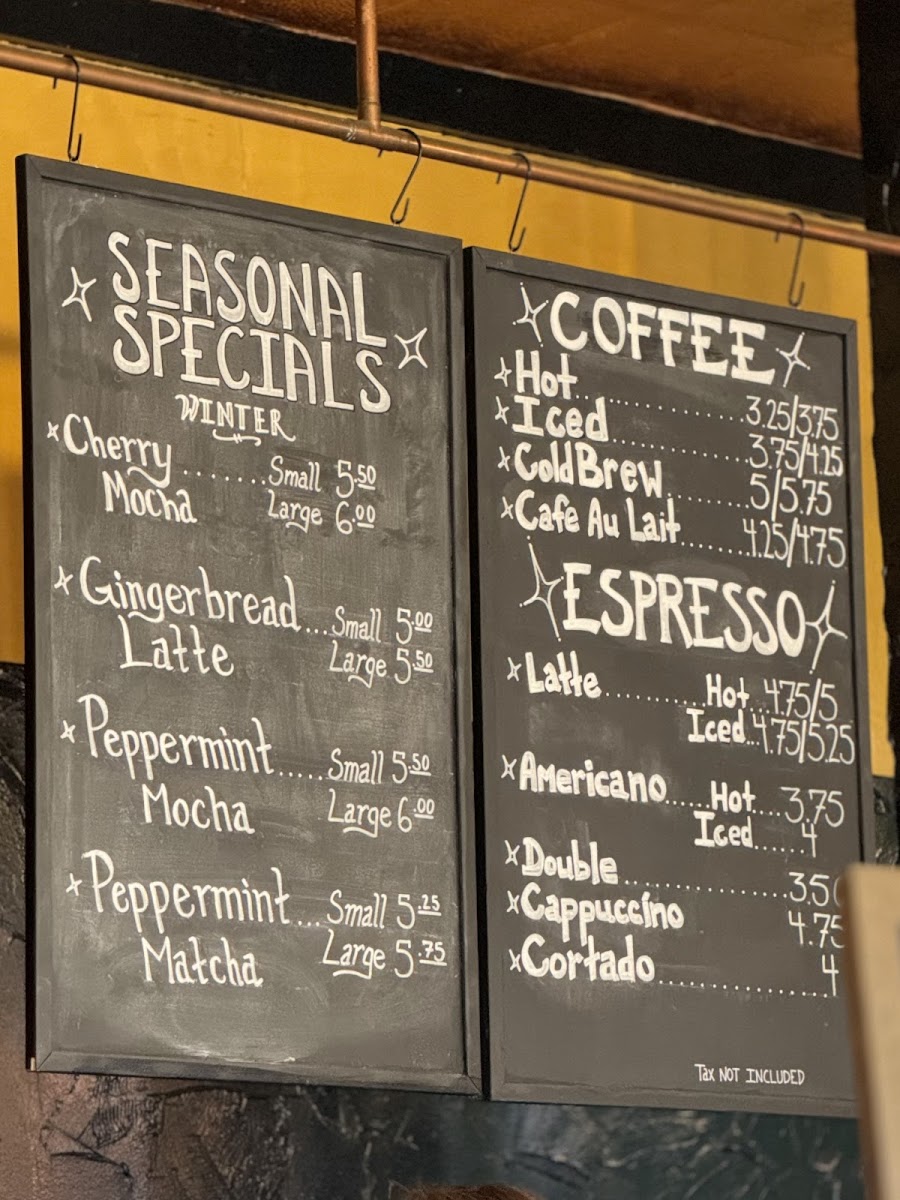 SEASONAL
SPECIALS
WINTER
Cherry ...... Small 5.50
Mocha Large 6.00
Gingerbread ... Small 5.00
Latte Large 5.50
Peppermint ..... Small 5.50
Mocha Large 6.00
Peppermint ... Small 5.25
Matcha Large 5.75
COFFEE
Hot ................ 3.25/3.75
Iced ............. 3.75/4.25
Cold Brew ........ 5/5.75
Cafe Au Lait ....... 4.25/4.75
ESPRESSO
Latte ......... Hot 4.75/5
Iced... 4.75/5.25
Americano ..... Hot... 3.75
Iced ...... 4
Double ................ 3.50
Cappuccino 4.75
Cortado ................ 4
Tax NOT INCLUDED